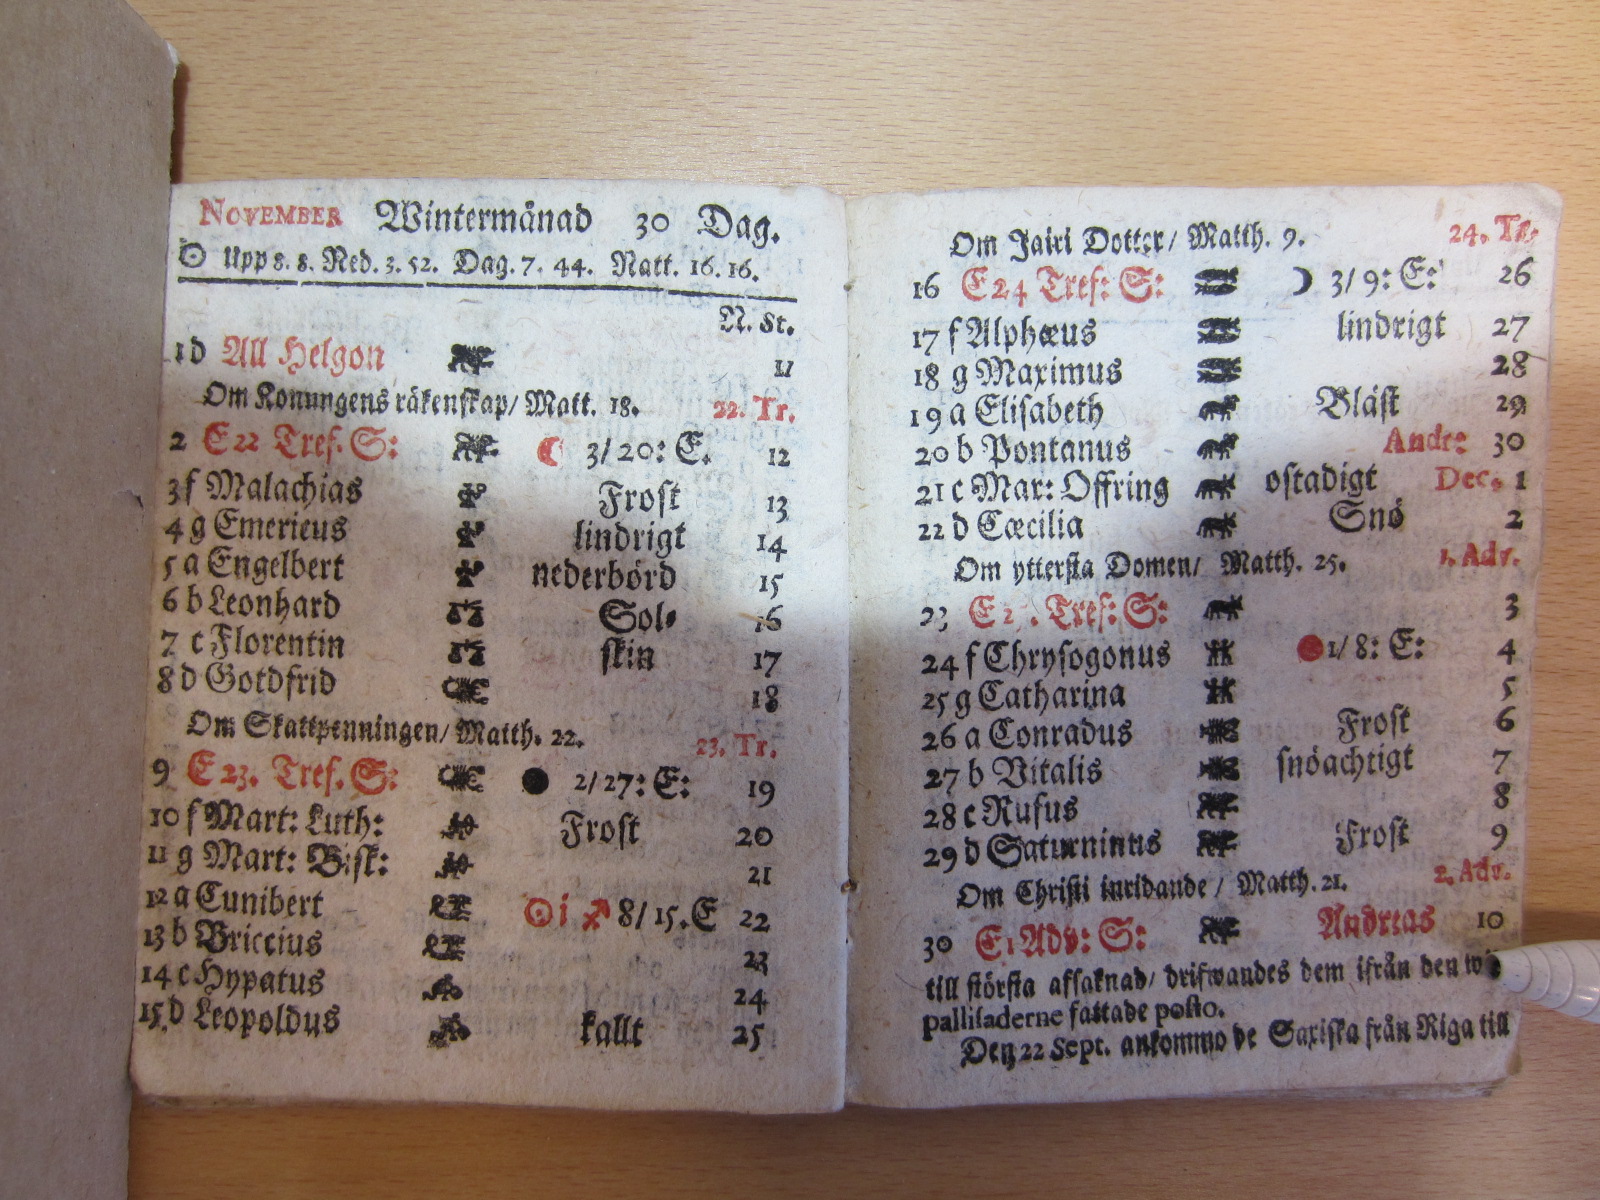 NOVEMBER Wintermånad 30 Dag.
Upp 8. 8. Ned. 3. 52. Dag. 7. 44. Natt. 16. 16.
N. St.
1 d All Helgon 11
Om Konungens räkenskap/ Matt. 18. 22. Tr.
2 E 22 Tref. S: 3/20: E. 12
3 f Malachias Frost 13
4 g Emericus lindrigt 14
5 a Engelbert nederbörd 15
6 b Leonhard Sol- 16
7 c Florentin skin 17
8 d Gotdfrid 18
Om Skattpenningen/ Matth. 22. 23. Tr.
9 E 23. Tref. S: 2/27: E: 19
10 f Mart: Luth: Frost 20
11 g Mart: Bisk: 21
12 a Cunibert ☉ i ♐ 8/15. E 22
13 b Briccius 23
14 c Hypatus 24
15 d Leopoldus kallt 25
Om Jairi Dotter/ Matth. 9. 24. Tr.
16 E 24 Tref: S: ☽ 3/9: E: 26
17 f Alphæus lindrigt 27
18 g Maximus 28
19 a Elisabeth Bläst 29
20 b Pontanus Andr: 30
21 c Mar: Offring ostadigt Dec. 1
22 d Cæcilia Snö 2
Om yttersta Domen/ Matth. 25. 1. Adv.
23 E 2 . Tref: S: 3
24 f Chrysogonus 1/8: E: 4
25 g Catharina 5
26 a Conradus Frost 6
27 b Vitalis snöachtigt 7
28 c Rufus 8
29 d Saturninus Frost 9
Om Christi inridande/ Matth. 21. 2. Adv.
30 E 1 Adv: S: Andreas 10
till största afsaknad/ drifwandes dem ifrån den
palliladerne fattade posto.
Den 22 Sept. ankommo de Saxiska från Riga till